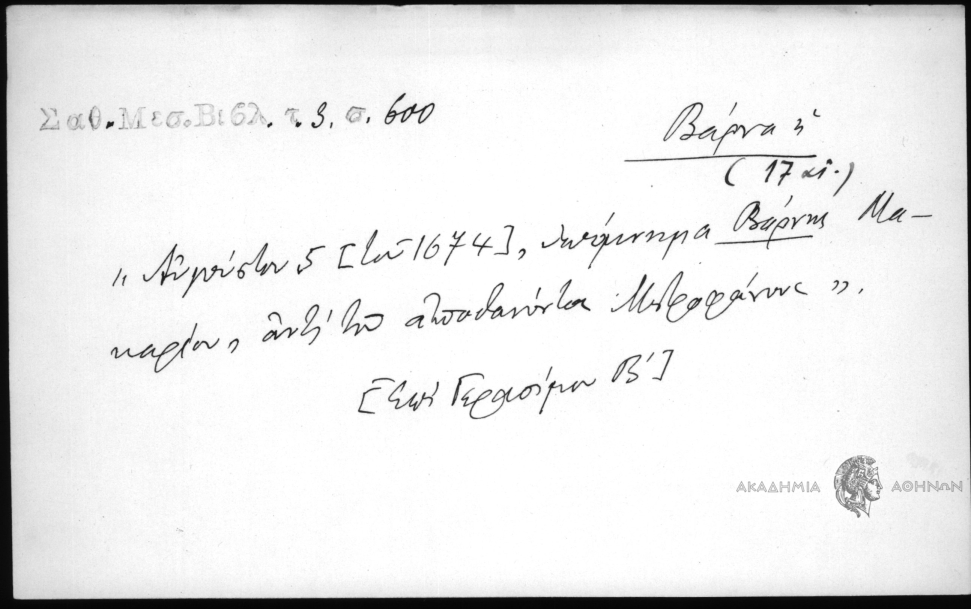 Σαθ. Μεσ. Βιβλ. τ. 3. σ. 600
Βάρνα ἡ
(17 αἰ.)
" Αὐγούστου 5 [τοῦ 1674], ὑπόμνημα Βάρνης Μα-
καρίου, ἀντὶ τοῦ ἀποθανόντος Μητροφάνους ".
[ἐπὶ Γερασίμου Β']
ΑΚΑΔΗΜΙΑ ΑΘΗΝΩΝ